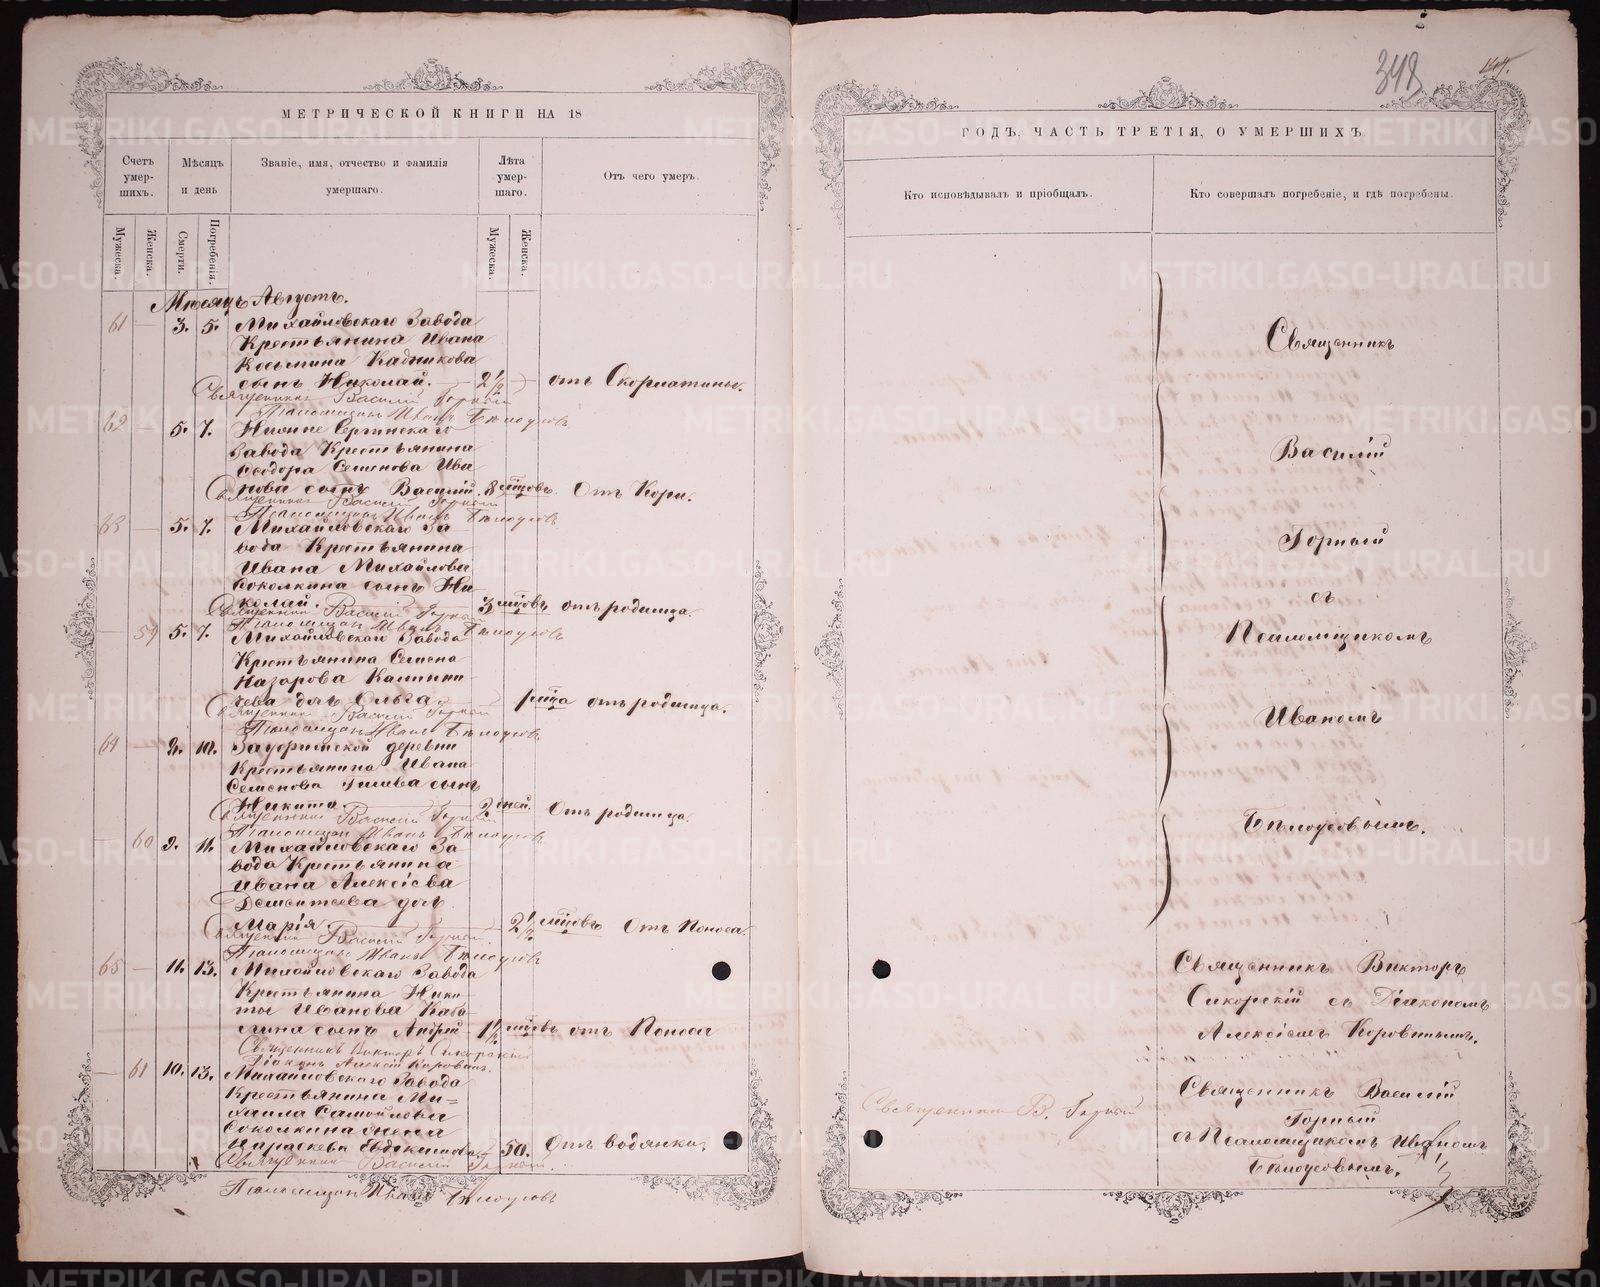 МЕТРИЧЕСКОЙ КНИГИ НА 18
Счетъ умер-шихъ.
Мѣсяцъ и день
Званіе, имя, отчество и фамилія умершаго.
Лѣта умер-шаго.
Отъ чего умеръ.
Мужеска.
Женска.
Смерти.
Погребенія.
Мужеска.
Женска.
Мѣсяцъ Августъ.
61 — 3. 5. Михайловскаго Завода
Крестьянина Ивана
Козьмина Кадникова
сынъ Николай. — 2½ — отъ Скорлатины.
Священникъ Василій Горный
Псаломщикъ Иванъ Бѣлоусовъ
62 — 5. 7. Нижне Сергинскаго
Завода Крестьянина
Ѳеодора Семенова Ива
нова сынъ Василій. 8 мцовъ. Отъ Кори.
Священникъ Василій Горный
Псаломщикъ Иванъ Бѣлоусовъ
63 — 5. 7. Михайловскаго За
вода Крестьянина
Ивана Михайлова
Соколкина сынъ Ни
колай. 3 мцовъ отъ родимца.
Священникъ Василій Горный
Псаломщикъ Иванъ Бѣлоусовъ
— 59 5. 7. Михайловскаго Завода
Крестьянина Семена
Назарова
чева дочь Ольга 1 мца отъ родимца.
Священникъ Василій Горный
Псаломщикъ Иванъ Бѣлоусовъ
64 — 10. деревни
Крестьянина Ивана
Семенова сынъ
Никита 2 дней. Отъ родимца.
Священникъ Василій Горный
Псаломщикъ Иванъ Бѣлоусовъ
— 60 9. 11. Михайловскаго За
вода Крестьянина
Ивана Алексіева
Дементьева дочь
Марія 2½ мцовъ Отъ Поноса.
Священникъ Василій Горный.
Псаломщикъ Иванъ Бѣлоусовъ
65 — 11. 13. Михайловскаго Завода
Крестьянина Ники
ты Иванова Каба
лина сынъ Андрей 1½ мцовъ отъ Поноса
Священникъ Викторъ Сикорскій
Діаконъ Алексій Коровинъ.
— 61 10. 13. Михайловскаго Завода
Крестьянина Ми=
хаила Самойлова
Соколкина жена
Параскева Евдокимова. 50. Отъ водянки.
Священникъ Василій Горный.
Псаломщикъ Иванъ Бѣлоусовъ
348
ГОДЪ, ЧАСТЬ ТРЕТІЯ, О УМЕРШИХЪ.
Кто исповѣдывалъ и пріобщалъ.
Кто совершалъ погребеніе, и гдѣ погребены.
Священникъ
Василій
Горный
съ
Псаломщикомъ
Иваномъ
Бѣлоусовымъ.
Священникъ Викторъ
Сикорскій съ Діакономъ
Алексіемъ Коровинымъ.
Священникъ В. Горный
Священникъ Василій
Горный
съ Псаломщикомъ Иваномъ
Бѣлоусовымъ.
METRIKI.GASO-URAL.RU